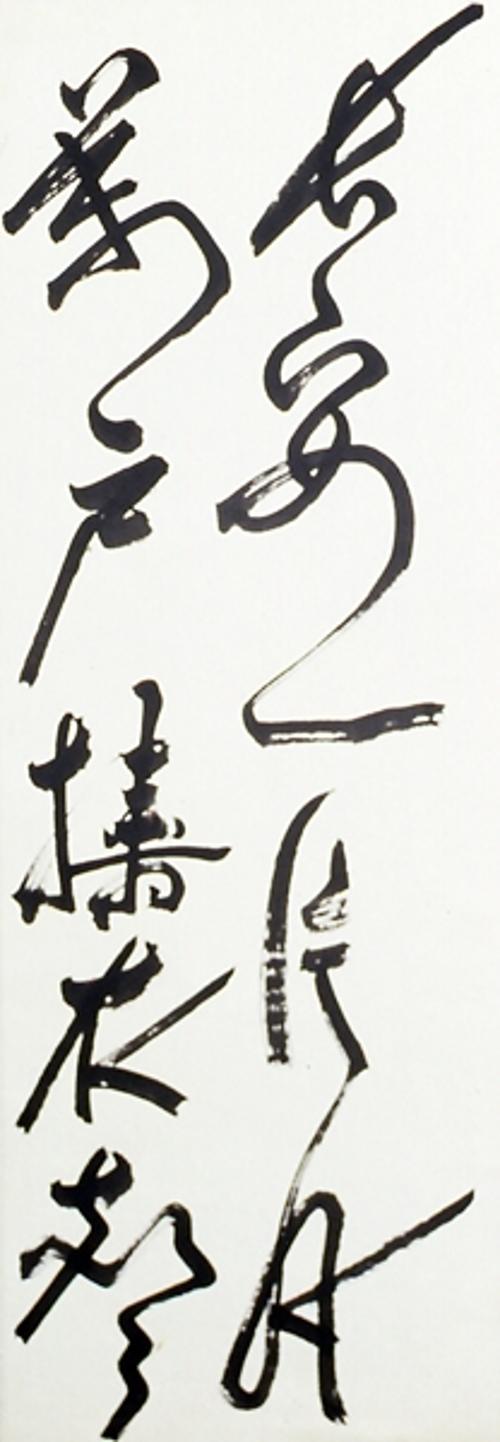 長安一片月
萬戶擣衣聲